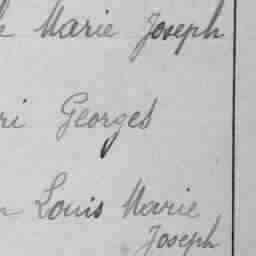 Marie Joseph
ri Georges
Louis Marie
Joseph